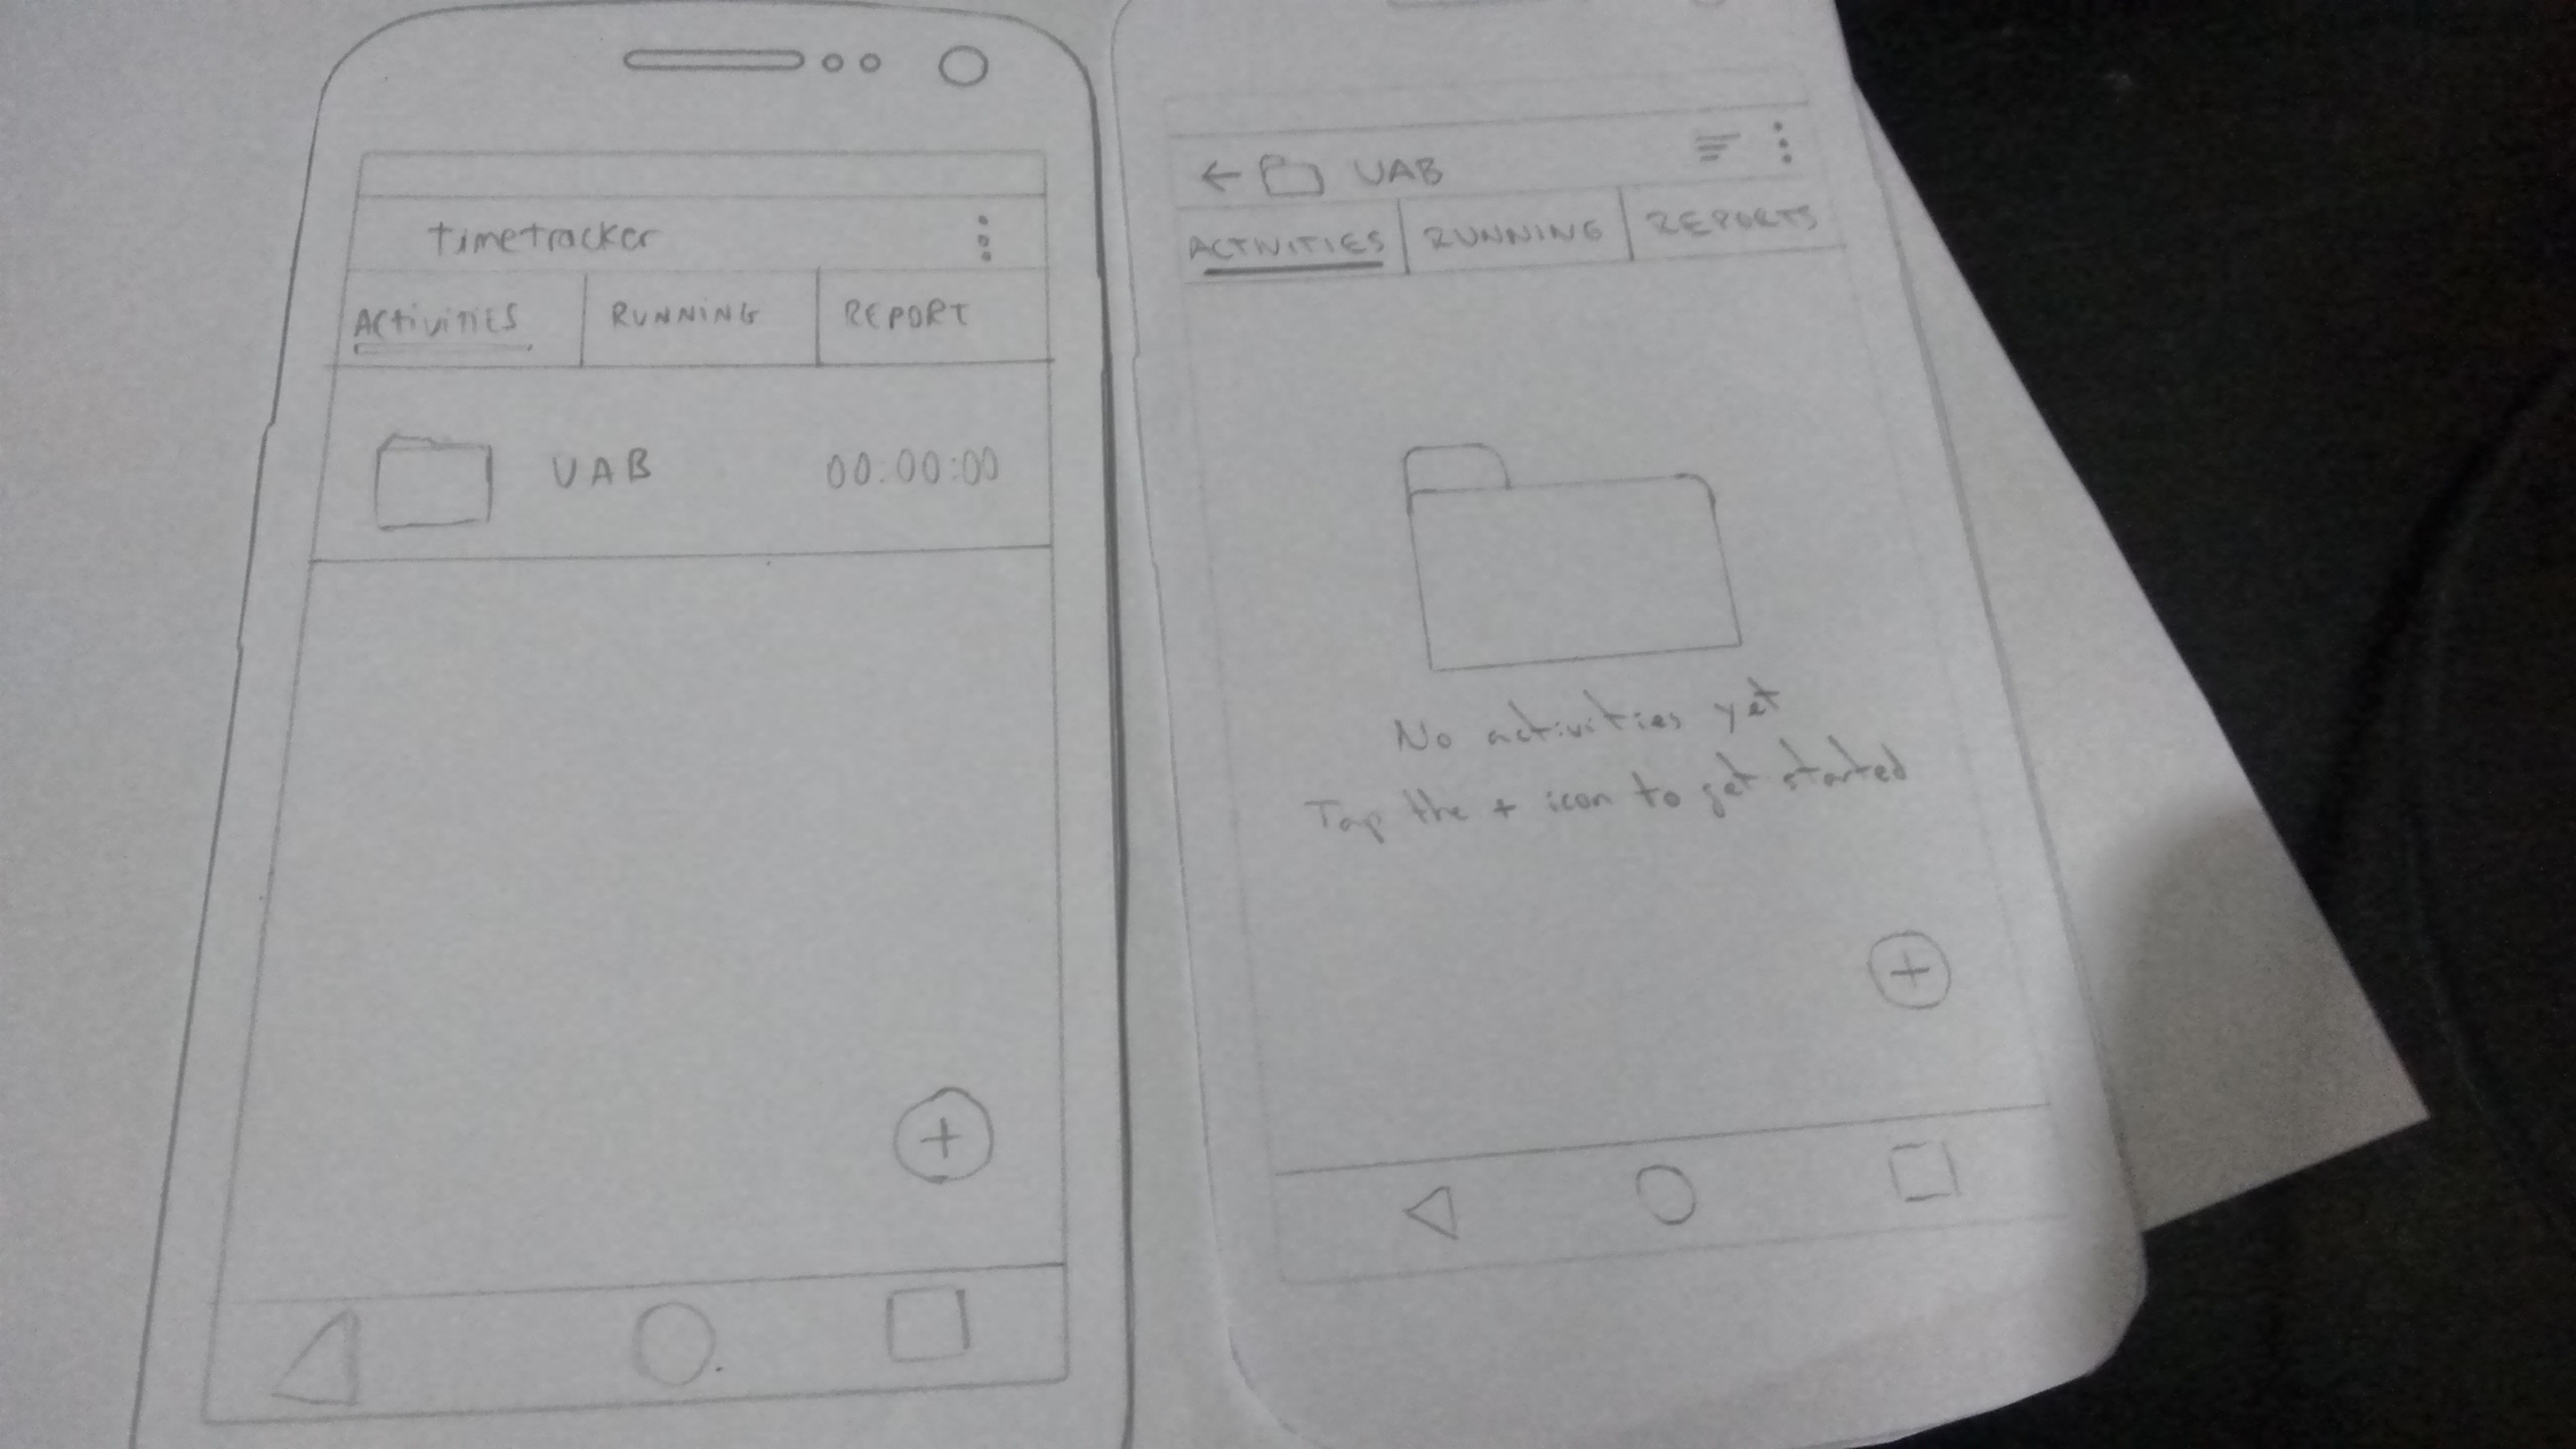 timetracker
ACTiViTiES
RUNNiNG
REPORT
UAB
00:00:00
+
UAB
ACTIVITIES
RUNNING
REPORTS
No activities yet
Tap the + icon to get started
+